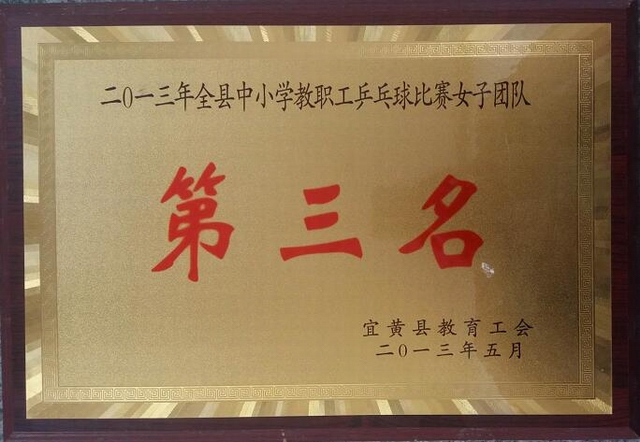 二〇一三年全县中小学教职工乒乓球比赛女子团队
第三名
宜黄县教育工会
二〇一三年五月